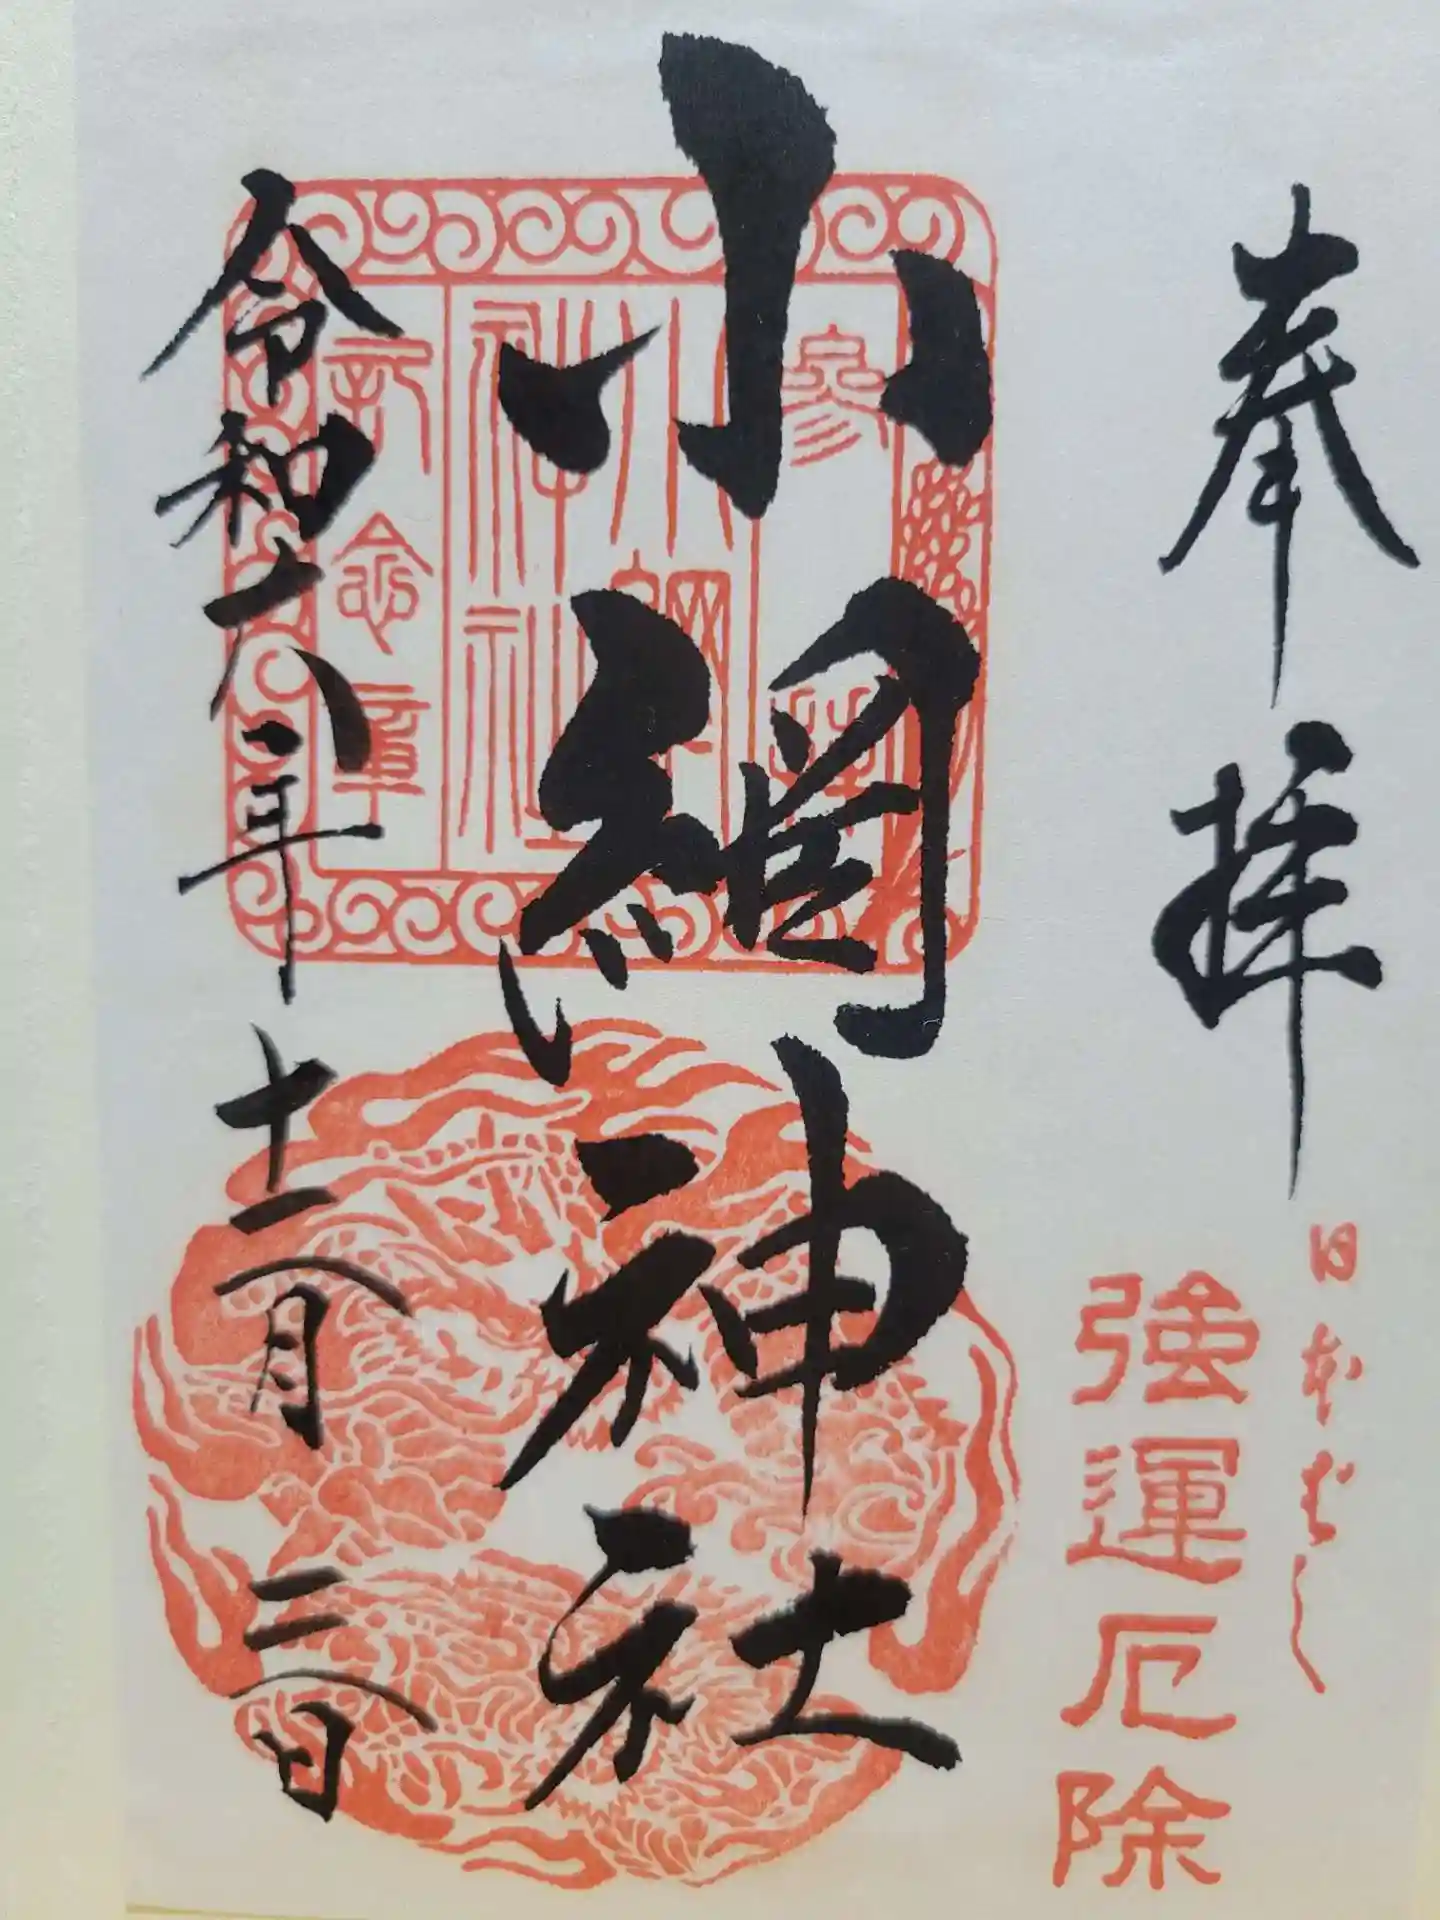 奉拝
日本ばし
強運厄除
小網神社
参拝
小網
神社
記念章
令和六年十二月三日